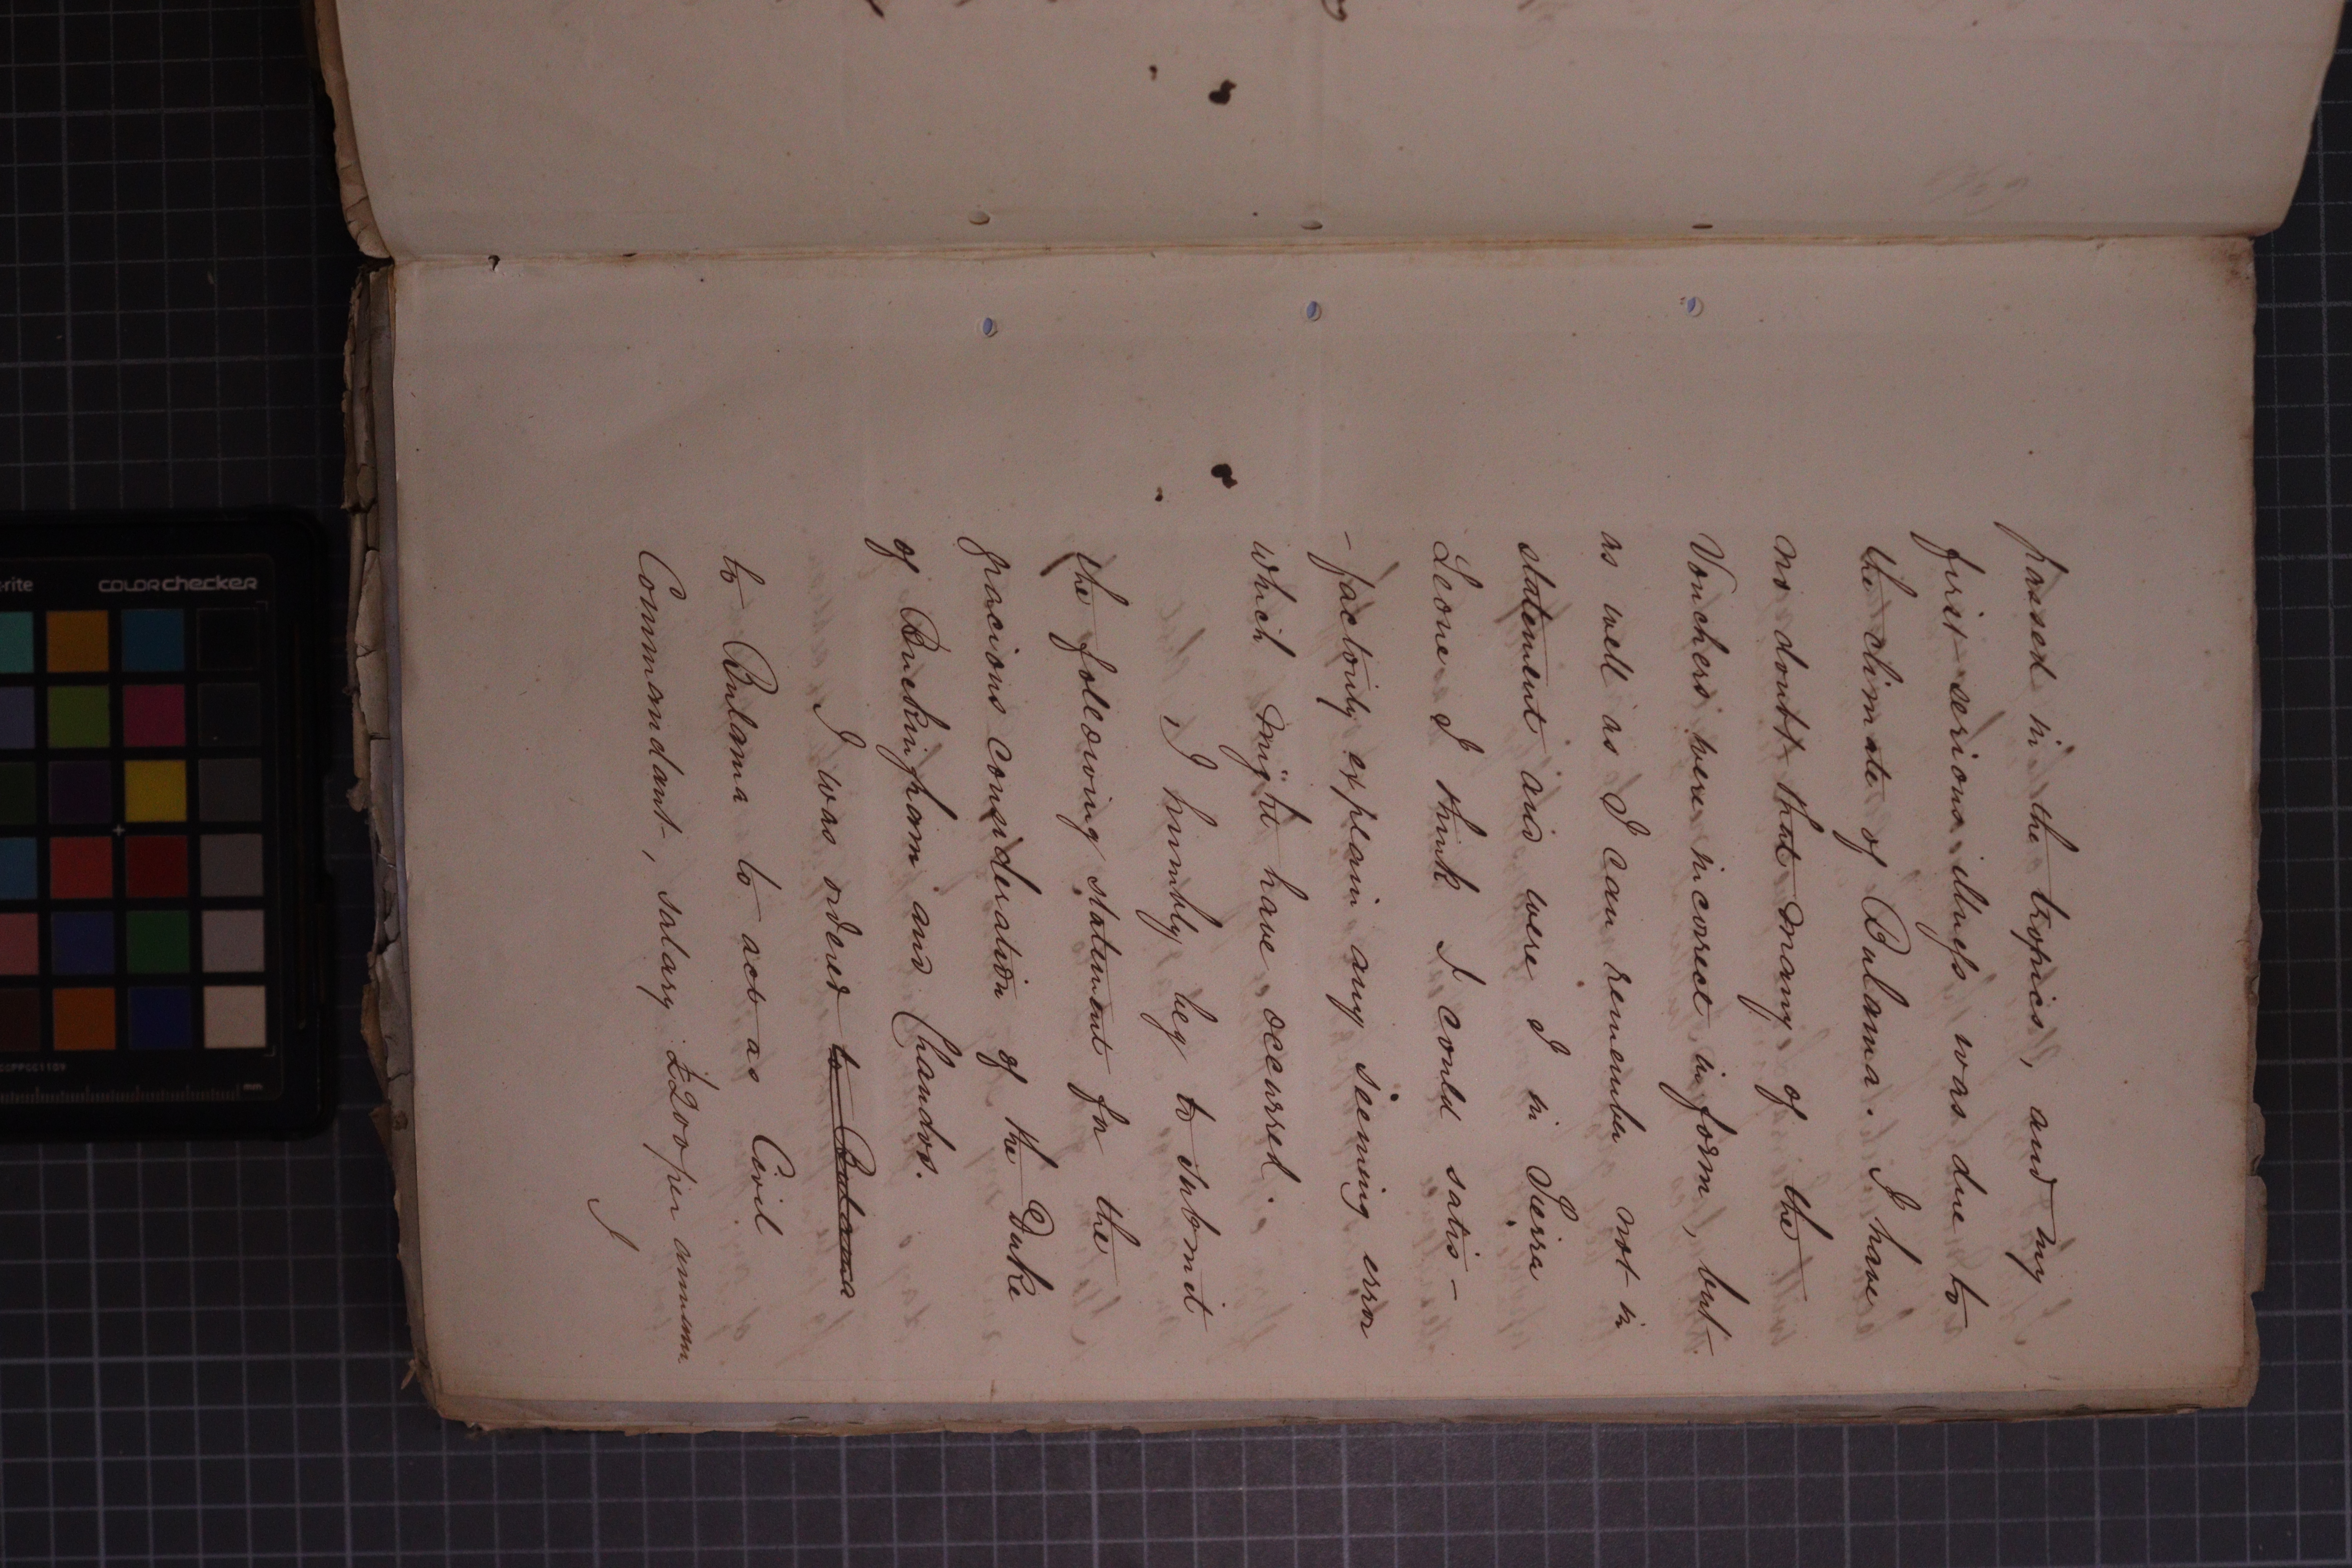 passed in the tropics, and my
first serious illness was due to
the climate of Bulama. I have
no doubt that many of the
Vouchers were incorrect in form, but
as well as I can remember not in
statement and were I in Sierra
Leone I think I could satis-
-factorily explain any seeming error
which might have occurred.
I humbly beg to submit
the following statement for the
gracious consideration of the Duke
of Buckingham and Chandos.
I was ordered to Bulama
to Bulama to act as Civil
Commandant, salary £200 per annum
I
x-rite COLORchecker